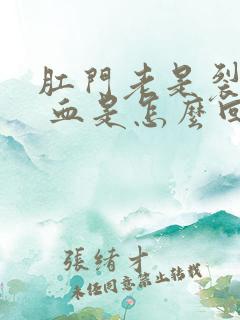 肛門老是裂
血是怎麼回
張緒才
未經同意禁止轉載